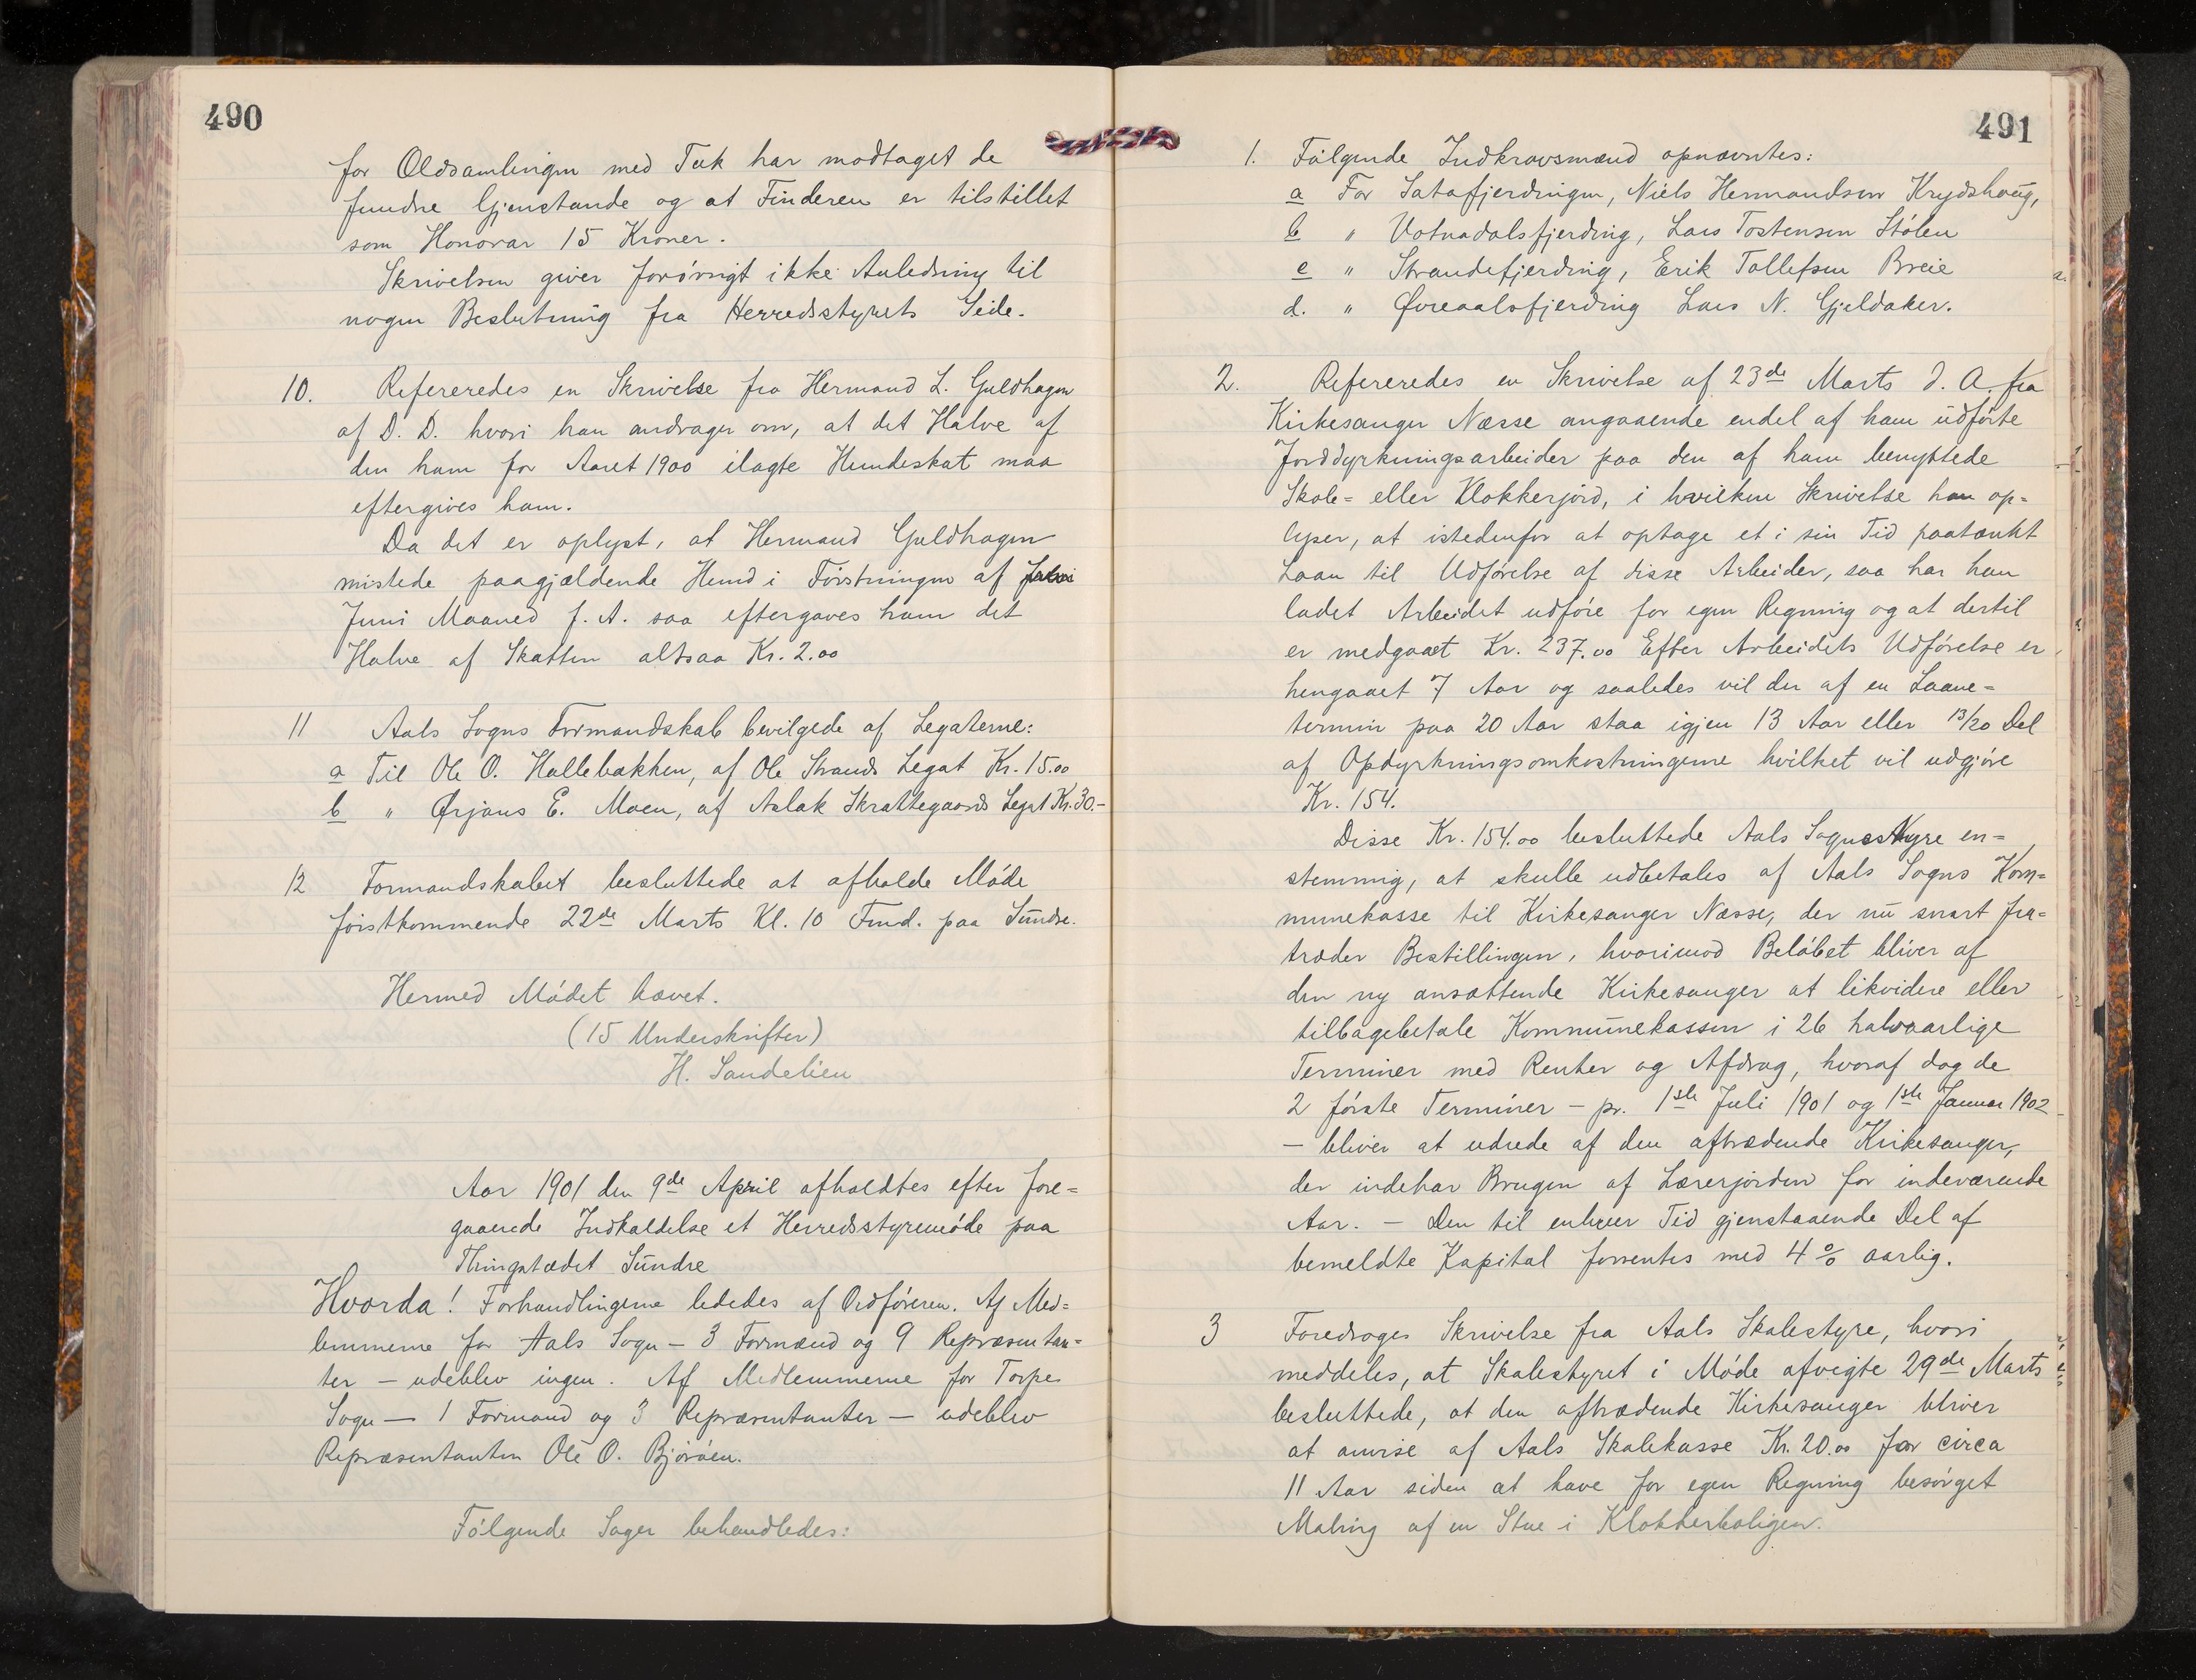 490
for Oldsamlingen med Tak har modtaget de
fundne Gjenstande og at Finderen er tilstillet
som Honorar 15 Kroner.
Skrivelsen giver forøvrigt ikke Anledning til
nogen Beslutning fra Herredsstyrets Side.
10. Refereredes en Skrivelse fra Hermand L. Guldhagen
af D. D. hvori han andrager om, at det Halve af
den ham for Aaret 1900 ilagte Hundeskat maa
eftergives ham.
Da det er oplyst, at Hermand Guldhagen
mistede paagjældende Hund i Førstningen af
Juni Maaned f. A. saa eftergaves ham det
Halve af Skatten altsaa Kr. 2.00
11 Aals Sogns Formandskab bevilgede af Legaterne:
a Til Ole O. Hallebakken, af Ole Strands Legat Kr. 15.00
b " Ørjans E. Moen, af Aslak Skrattegaards Legat Kr. 30.-
12 Formandskabet besluttede at afholde Møde
førstkommende 22de Marts Kl. 10 Fmd. paa Sundre.
Hermed Mødet hævet.
(15 Underskrifter)
H. Sandelien
Aar 1901 den 9de April afholdtes efter fore=
gaaende Indkaldelse et Herredsstyremøde paa
Thingstedet Sundre
Hvorda! Forhandlingerne lededes af Ordføreren. Af Med=
lemmerne for Aals Sogn - 3 Formænd og 9 Repræsentan=
ter - udeblev ingen. Af Medlemmerne for Torpe
Sogn - 1 Formand og 3 Repræsentanter - udeblev
Repræsentanten Ole O. Bjøråen.
Følgende Sager behandledes:
491
1. Følgende Indkravsmænd opnævntes:
a For Satafjerdingen, Niels Hermandsen Krydshaug,
b " Votnadalsfjerding, Lars Tostensen Stølen
c " Strandefjerding, Erik Tollefsen Breie
d. " Øvreaalsfjerding Lars N. Gjeldaker.
2. Refereredes en Skrivelse af 23de Marts d. A. fra
Kirkesanger Næsse angaaende endel af ham udførte
Jorddyrkningsarbeider paa den af ham benyttede
Skole= eller Klokkerjord, i hvilken Skrivelse han op=
lyser, at istedenfor at optage et i sin Tid paatænkt
Laan til Udførelse af disse Arbeider, saa har han
ladet Arbeidet udføre for egen Regning og at dertil
er medgaaet Kr. 237.00 Efter Arbeidets Udførelse er
hengaaet 7 Aar og saaledes vil der af en Laane=
termin paa 20 Aar staa igjen 13 Aar eller 13/20 Del
af Opdyrkningsomkostningerne hvilket vil udgjøre
Kr. 154.
Disse Kr. 154.00 besluttede Aals Sognestyre en=
stemmig, at skulle udbetales af Aals Sogns Kom=
munekasse til Kirkesanger Næsse, der nu snart fra=
træder Bestillingen, hvorimod Beløbet bliver af
den ny ansættende Kirkesanger at likvidere eller
tilbagebetale Kommunekassen i 26 halvaarlige
Terminer med Renter og Afdrag, hvoraf dog de
2 første Terminer - pr. 1ste Juli 1901 og 1ste Januar 1902
- bliver at udrede af den aftrædende Kirkesanger,
der indehar Brugen af Lærerjorden for indeværende
Aar. - Den til enhver Tid gjenstaaende Del af
bemeldte Kapital forrentes med 4 % aarlig.
3 Foredroges Skrivelse fra Aals Skolestyre, hvori
meddeles, at Skolestyret i Møde afvigte 29de Marts
besluttede, at den aftrædende Kirkesanger bliver
at anvise af Aals Skolekasse Kr. 20.00 for circa
11 Aar siden at have for egen Regning besørget
Maling af en Stue i Klokkerboligen.